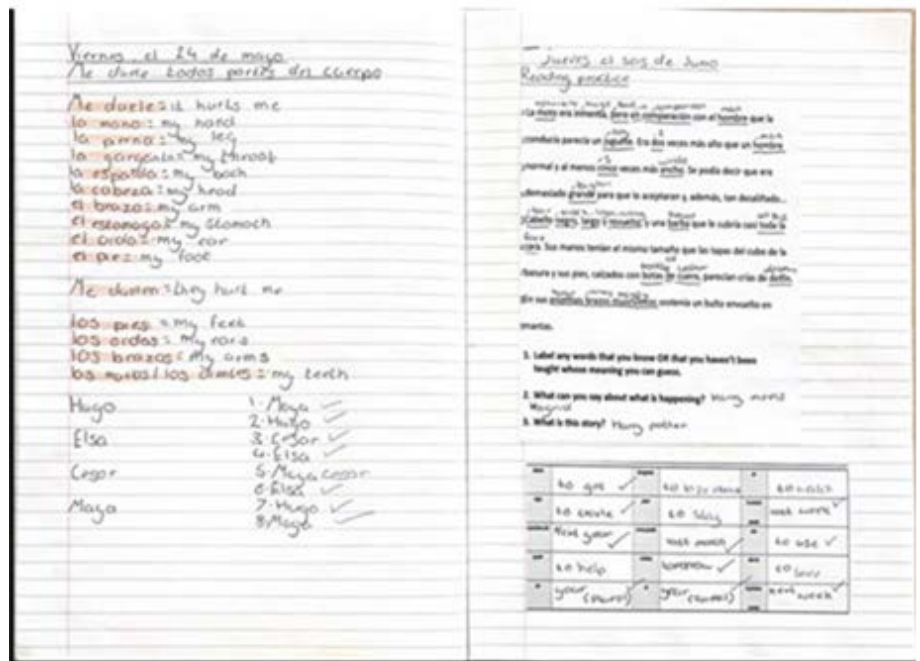 Viernes, el 24 de mayo
Me duele todos partes del cuerpo
Me duele: it hurts me
la mano: my hand
la pierna: my leg
la garganta: my throat
la espalda: my back
la cabeza: my head
el brazo: my arm
el estomago: my stomach
el oido: my ear
el pie: my foot
Me duelen: they hurt me
los pies = my feet
los oidos: my ears
los brazos: my arms
los muelas/los dientes: my teeth
Hugo
Elsa
Cesar
Maya
1. Maya
2. Hugo
3. Cesar
4. Elsa
5. Maya Cesar
6. Elsa
7. Hugo
8. Maya
Jueves el seis de Juno
Reading practice
La moto era inmensa, pero en comparación con el hombre que la
conducía parecía un juguete. Era dos veces más alto que un hombre
normal y al menos cinco veces más ancho. Se podía decir que era
demasiado grande para que lo aceptaran y, además, tan desaliñado...
Cabello negro, largo y revuelto, y una barba que le cubría casi toda la
cara. Sus manos tenían el mismo tamaño que las tapas del cubo de la
basura y sus pies, calzados con botas de cuero, parecían crías de delfín.
En sus enormes brazos musculosos sostenía un bulto envuelto en
mantas.
1. Label any words that you know OR that you haven't been
taught whose meaning you can guess.
2. What can you say about what is happening? Harry meets
Hagrid
3. What is this story? Harry potter
to get
to watch
to create
to stay
last week
next year
last month
to use
to help
tomorrow
your
your
next week